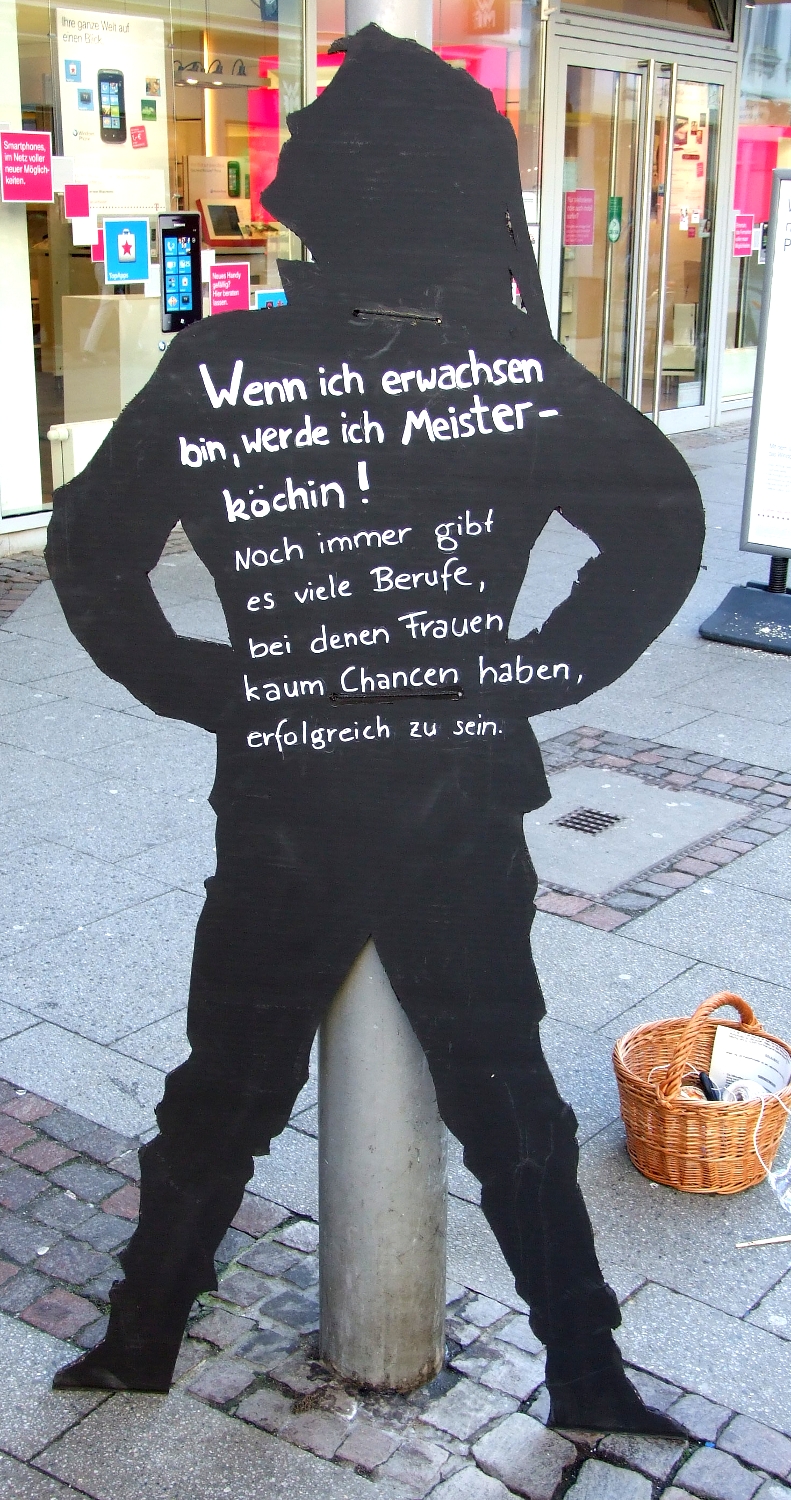 Ihre ganze Welt auf
einen Blick
Smartphones,
im Netz voller
neuer Möglich-
keiten.
TopApps
Neues Handy
gefällig?
Hier beraten
lassen.
Wenn ich erwachsen
bin, werde ich Meister-
köchin!
Noch immer gibt
es viele Berufe,
bei denen Frauen
kaum Chancen haben,
erfolgreich zu sein.